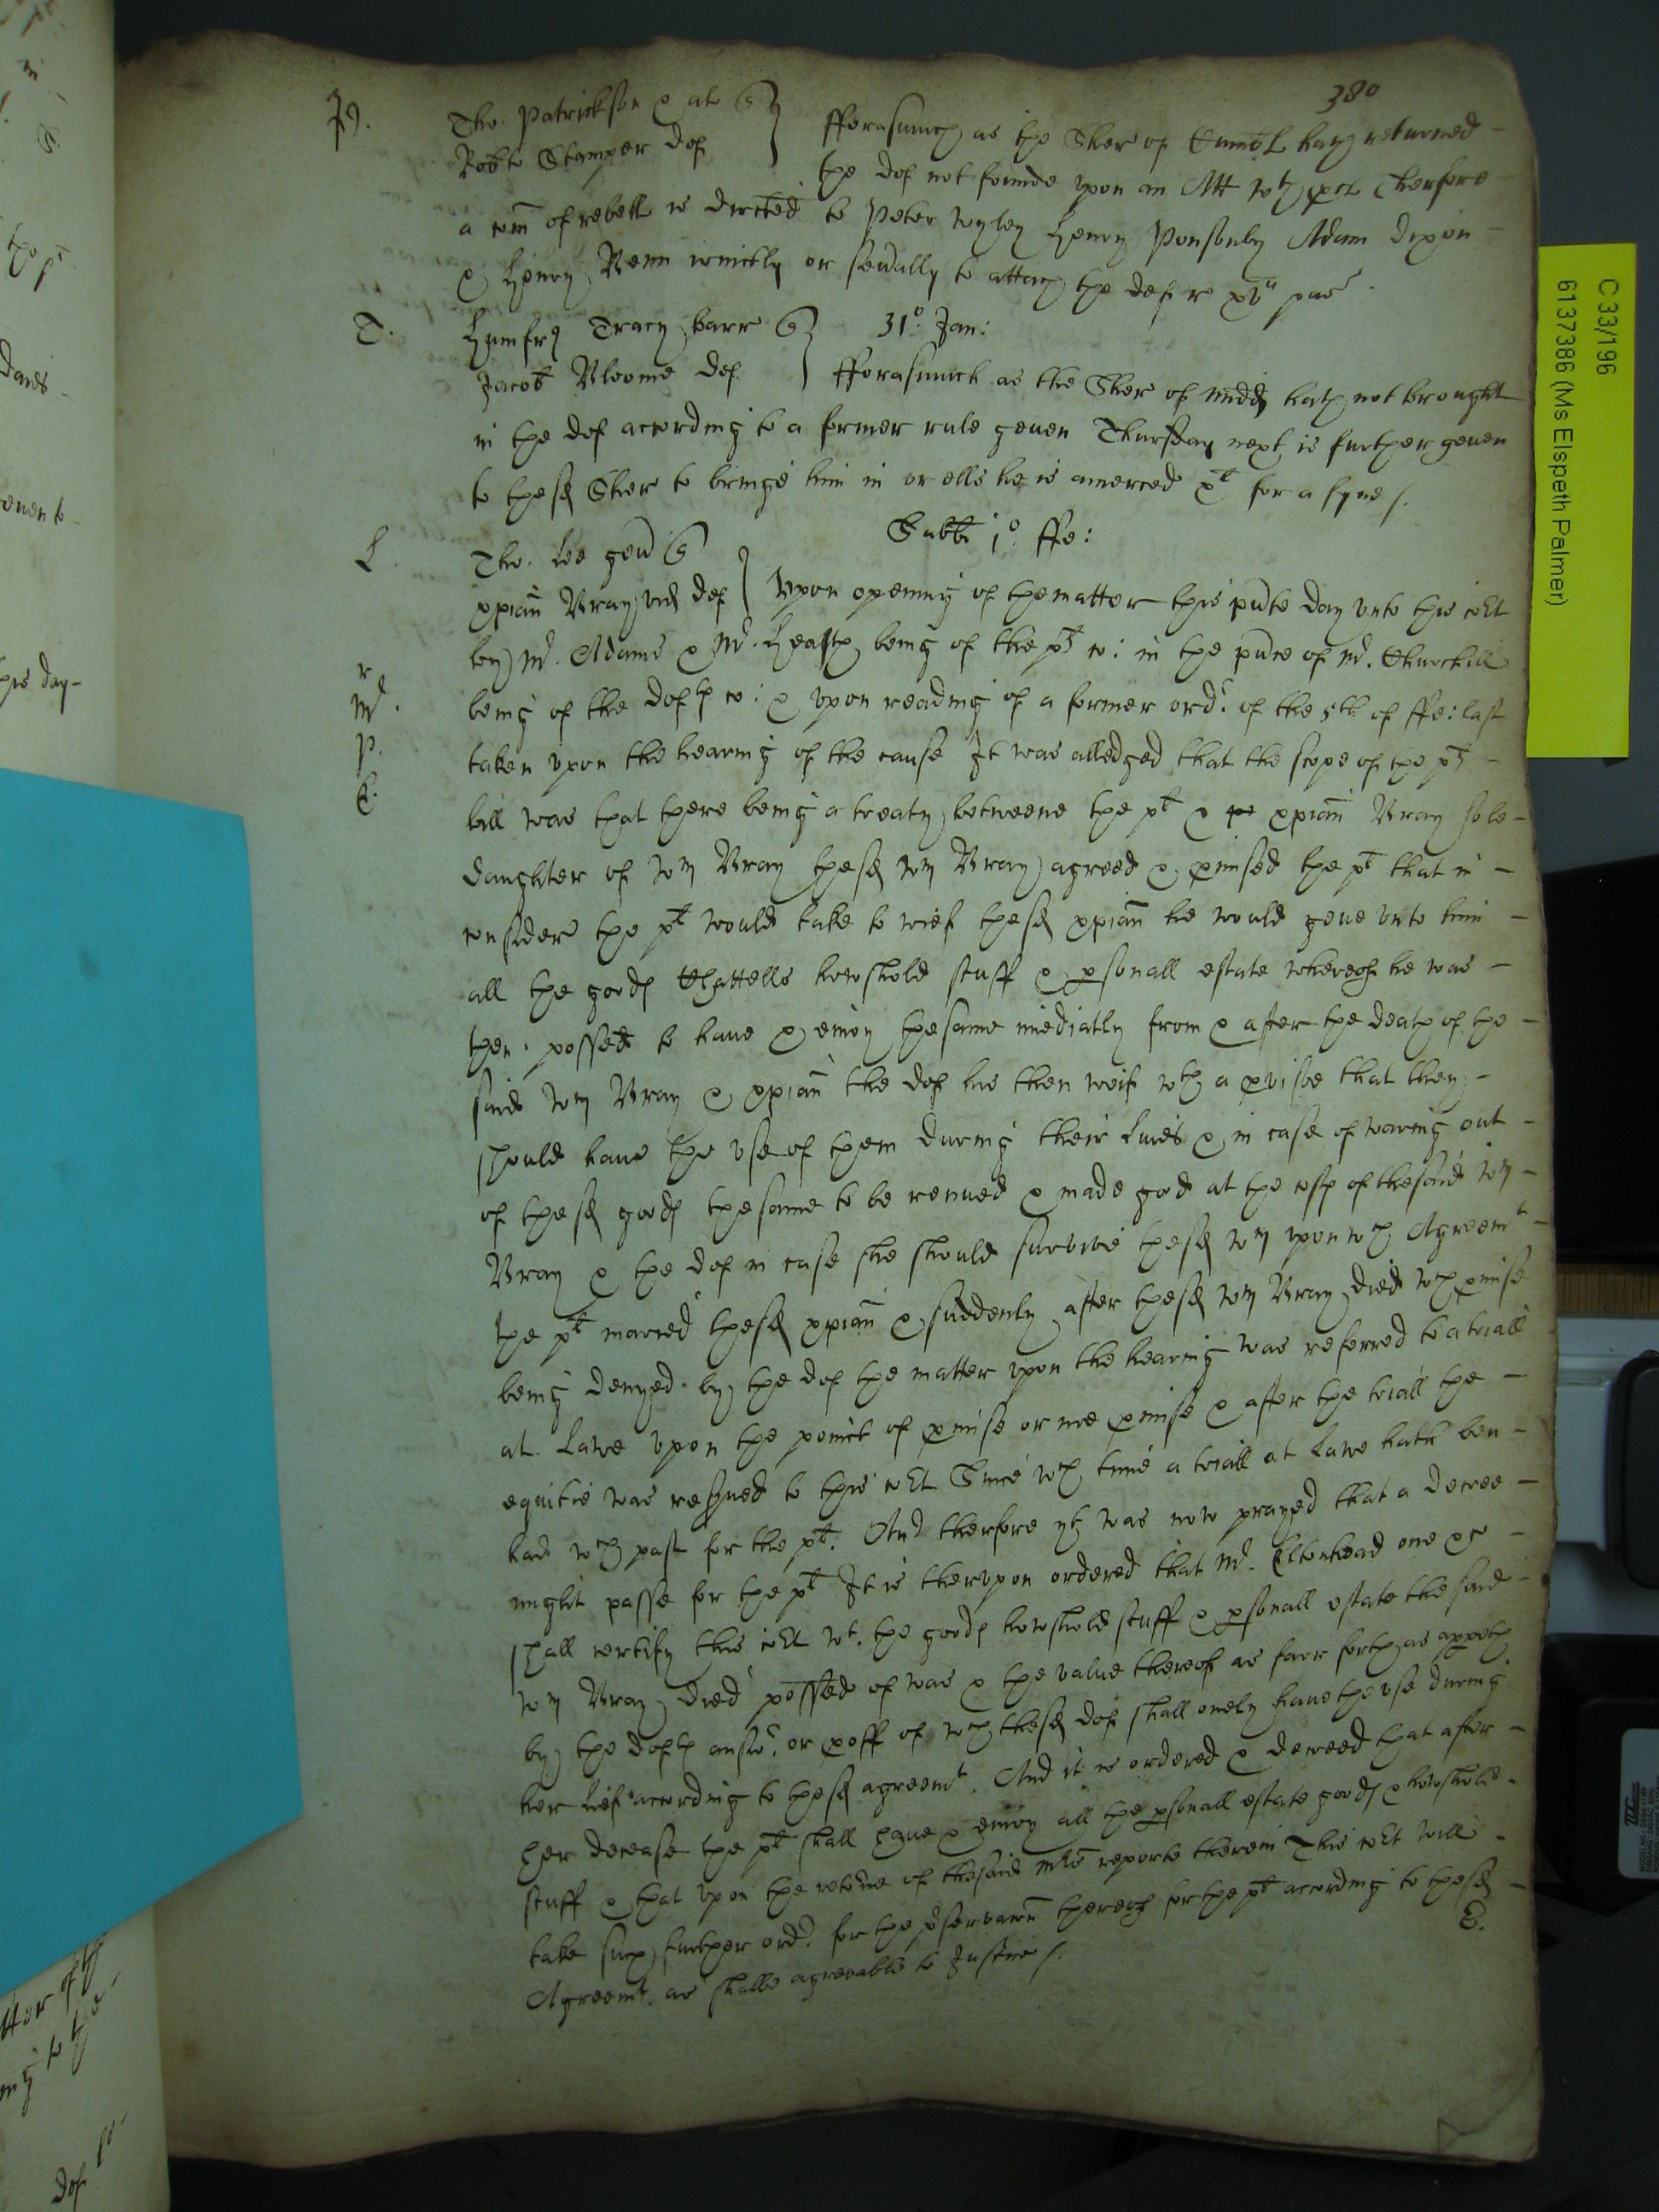 380
P. Tho. Patrickson & al q
Robte Stamper def
fforasmuch as the Sher of Cumbl hath returned
the def not founde vpon an Att wth procl Therfore
a com of rebell is directed to Peter Wyley Henry Ponsonby Adam Dixon
& Henry Benn ioinctly or seually to attach the def
T. Humfrey Tracy barr q
31º. Jan:
Jacob Bloome def
fforasmuch as the Sher of Midd hath not brought
in the def according to a former rule geuen Thursday next is further geuen
to the sd Sher to bringe him in or ells he is amerced for a fyne /.
Sabbti 1º. ffe:
L. Tho. Lee gen q
xpian Bray vid def
Vpon opening of the matter this pnte day vnto this cort
by Mr. Adams & Mr. Heath being of the plts co: in the pnce of Mr. Churchill
r
Mr. being of the defts co: & vpon reading of a former ordr. of the 5th of ffe: last
P. taken vpon the hearing of the cause It was alledged that the scope of the plts
E. bill was that there being a treaty betweene the plt & xpian Bray sole
daughter of Wm Bray the sd Wm Bray agreed & pmised the plt that in
consider the plt would take to wief the sd xpian he would geue vnto him
all the goods Chattells howshold stuff & psonall estate whereof he was
then possed to haue & enioy the same imediatly from & after the death of the
said Wm Bray & xpian the def his then wief wth a pviso that they
should haue the vse of them during their liues & in case of waring out
of the sd goods the same to be renued & made good at the costs of the said Wm
Bray & the def in case she should survive the sd Wm vpon wch Agreemt
the plt maried the sd xpian & suddenly after the sd Wm Bray died wch pmise
being denyed by the def the matter vpon the hearing was referred to a triall
at Lawe vpon the poinct of pmise or noe pmise & after the triall the
equitie was resrued to this cort Since wch time a triall at Lawe hath ben
had wch past for the plt. And therfore yt was now prayed that a decree
might passe for the plt It is thervpon ordered that Mr. Eltonhead one &c
shall certify this cort wt. the goods howshold stuff & psonall estate the said
Wm Bray died possed of was & the value thereof as farr forth as appeth
by the defts answr. or proff of wch the sd def shall onely haue the vse during
her lief according to the sd agreemt. And it is ordered & decreed that after
her decease the plt shall haue & enioy all the psonall estate goods & howshold
stuff & that vpon the retorne of the said Mrs reporte therein This cort will
take such further ordr. for the pservacon thereof for the plt according to the sd
Agreemt. as shalbe agreeable to Justice /.
E.
C 33/196
6137386 (Ms Elspeth Palmer)